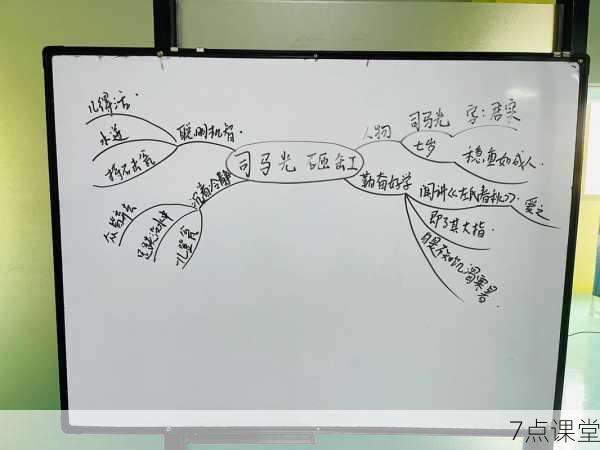 司马光 砸缸
人物
司马光
字:君实
七岁
稳重如成人.
勤奋好学
闻讲《左氏春秋》.
爱之
即了其大指.
聪明机智.
儿得活.
水迸
持石击瓮
沉着冷静
众皆弃去
足跌没水中
儿登瓮
7点课堂